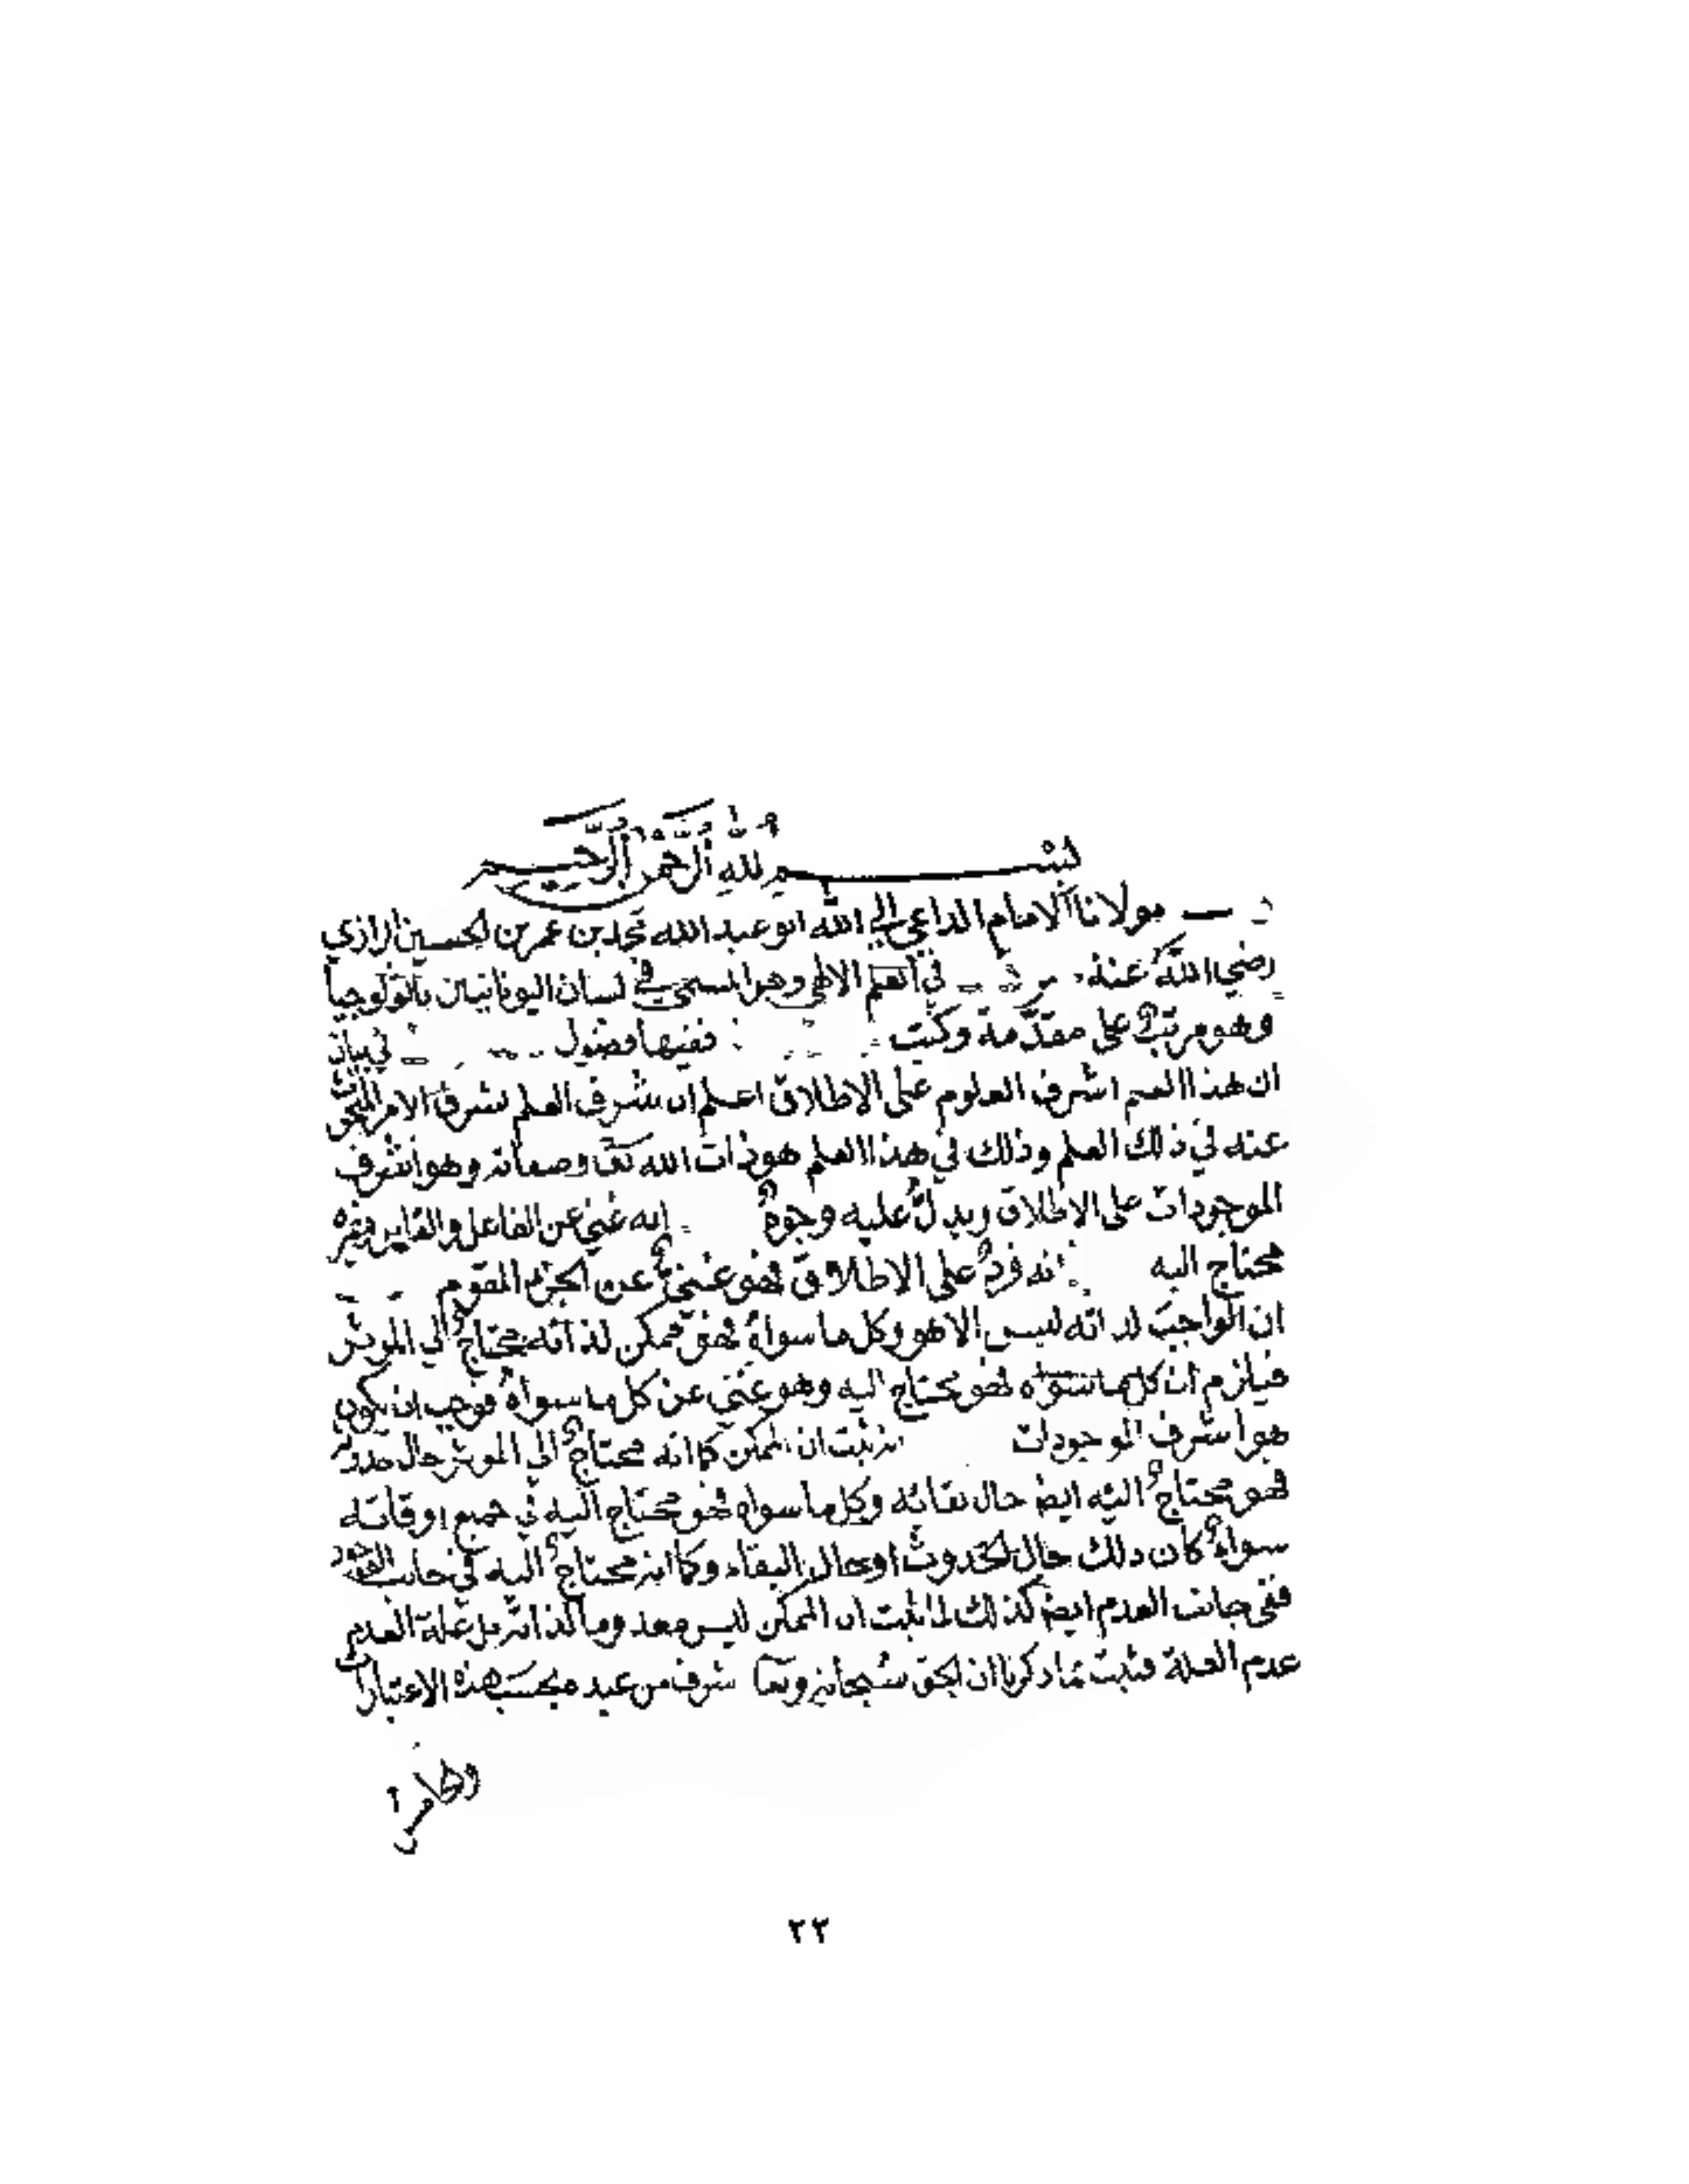 بسم الله الرحمن الرحيم
مولانا الامام الداعي الى الله ابو عبد الله محمد بن عمر بن الحسين الرازي
رضي الله عنه في العلم الالهي وهو المسمى في لسان اليونانيين باثولوجيا
وهو مرتب على مقدمة وكتب ففيها فصول في بيان
ان هذا العلم اشرف العلوم على الاطلاق اعلم ان شرف العلم بشرف الامر المبحوث
عنه في ذلك العلم وذلك في هذا العلم هو ذات الله تعا وصفاته وهو اشرف
الموجودات على الاطلاق ويدل عليه وجوه انه غني عن الفاعل والقابل وغيره
محتاج اليه انه فرد على الاطلاق فهو غني عن الجزء المقوم
ان الواجب لذاته ليس الا هو وكل ما سواه فهو ممكن لذاته محتاج الى الموثر
فيلزم ان كل ما سواه فهو محتاج اليه وهو غني عن كل ما سواه فوجب ان يكون
هو اشرف الموجودات ثبت ان الممكن كما انه محتاج الى الموثر حال حدوثه
فهو محتاج اليه ايض حال بقائه وكل ما سواه فهو محتاج اليه في جميع اوقاته
سواء كان ذلك حال الحدوث او حال البقاء وكما انه محتاج اليه في جانب الوجود
ففي جانب العدم ايض كذلك لما ثبت ان الممكن ليس معدوما لذاته بل علة العدم
عدم العلة فثبت بما ذكرنا ان الحق سبحانه وتعا شرف من عبده بحسب هذه الاعتبارات
٢٢